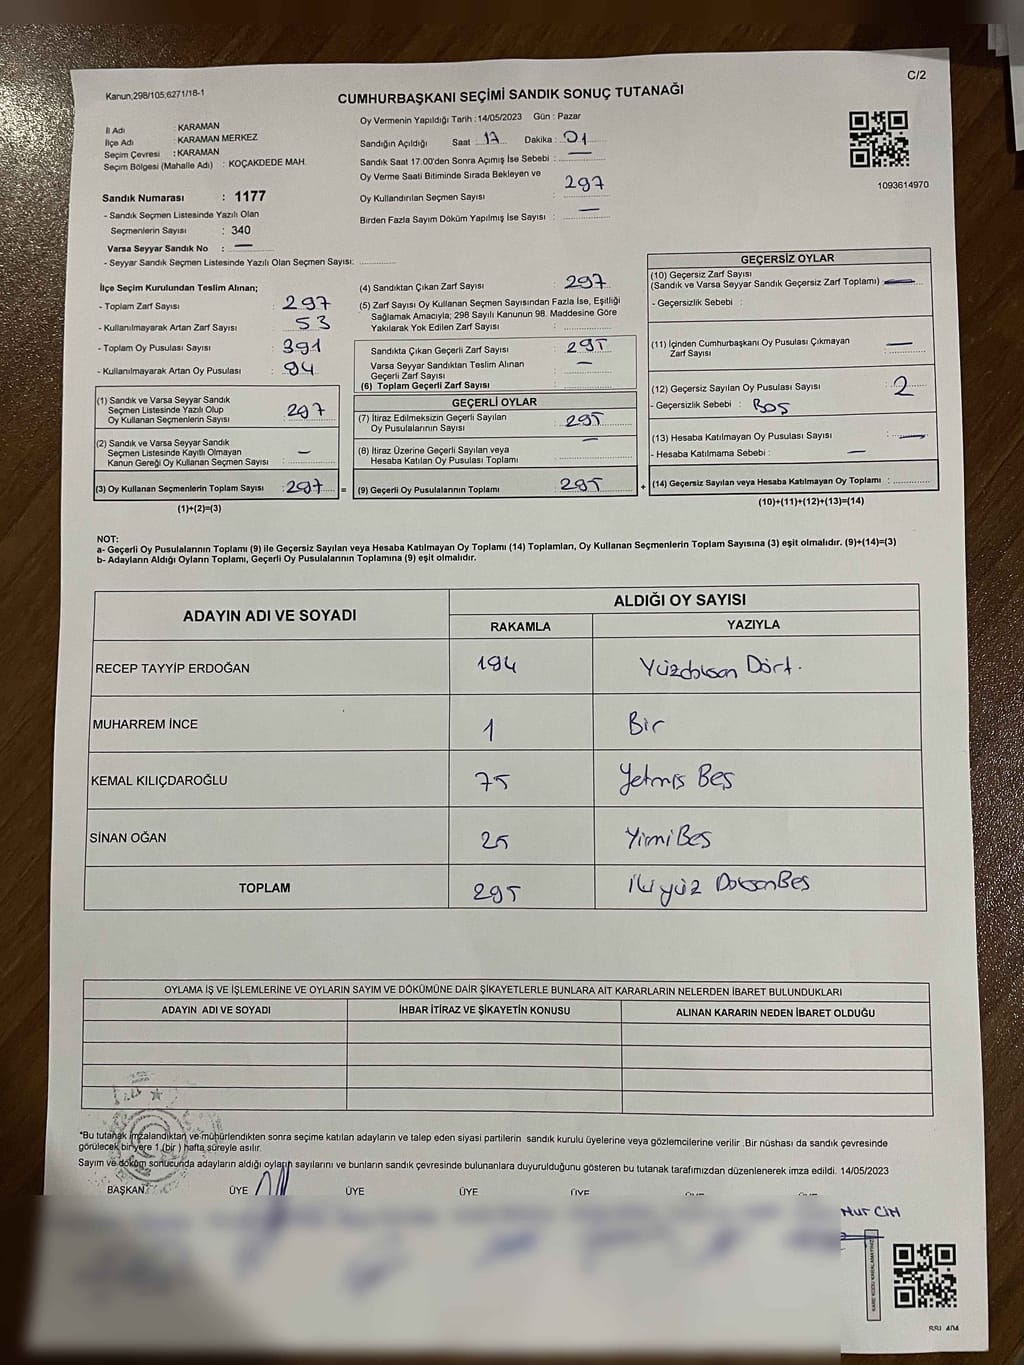 C/2
Kanun,298/105;6271/18-1
CUMHURBAŞKANI SEÇİMİ SANDIK SONUÇ TUTANAĞI
İl Adı : KARAMAN
İlçe Adı : KARAMAN MERKEZ
Seçim Çevresi : KARAMAN
Seçim Bölgesi (Mahalle Adı) : KOÇAKDEDE MAH.
Sandık Numarası : 1177
- Sandık Seçmen Listesinde Yazılı Olan
Seçmenlerin Sayısı : 340
Varsa Seyyar Sandık No : —
- Seyyar Sandık Seçmen Listesinde Yazılı Olan Seçmen Sayısı:
Oy Vermenin Yapıldığı Tarih : 14/05/2023 Gün : Pazar
Sandığın Açıldığı Saat : 17 Dakika : 01
Sandık Saat 17:00'den Sonra Açımış İse Sebebi : —
Oy Verme Saati Bitiminde Sırada Bekleyen ve
Oy Kullandırılan Seçmen Sayısı : 297
Birden Fazla Sayım Döküm Yapılmış İse Sayısı : —
1093614970
İlçe Seçim Kurulundan Teslim Alınan;
- Toplam Zarf Sayısı : 297
- Kullanılmayarak Artan Zarf Sayısı : 53
- Toplam Oy Pusulası Sayısı : 391
- Kullanılmayarak Artan Oy Pusulası : 94
(1) Sandık ve Varsa Seyyar Sandık
Seçmen Listesinde Yazılı Olup
Oy Kullanan Seçmenlerin Sayısı : 297
(2) Sandık ve Varsa Seyyar Sandık
Seçmen Listesinde Kayıtlı Olmayan
Kanun Gereği Oy Kullanan Seçmen Sayısı : —
(3) Oy Kullanan Seçmenlerin Toplam Sayısı : 297 =
(1)+(2)=(3)
(4) Sandıktan Çıkan Zarf Sayısı : 297
(5) Zarf Sayısı Oy Kullanan Seçmen Sayısından Fazla İse, Eşitliği
Sağlamak Amacıyla; 298 Sayılı Kanunun 98. Maddesine Göre
Yakılarak Yok Edilen Zarf Sayısı :
Sandıkta Çıkan Geçerli Zarf Sayısı : 295
Varsa Seyyar Sandıktan Teslim Alınan : —
Geçerli Zarf Sayısı
(6) Toplam Geçerli Zarf Sayısı :
GEÇERLİ OYLAR
(7) İtiraz Edilmeksizin Geçerli Sayılan
Oy Pusulalarının Sayısı : 295
(8) İtiraz Üzerine Geçerli Sayılan veya
Hesaba Katılan Oy Pusulası Toplamı : —
(9) Geçerli Oy Pusulalarının Toplamı : 295 +
GEÇERSİZ OYLAR
(10) Geçersiz Zarf Sayısı
(Sandık ve Varsa Seyyar Sandık Geçersiz Zarf Toplamı) : —
- Geçersizlik Sebebi :
(11) İçinden Cumhurbaşkanı Oy Pusulası Çıkmayan
Zarf Sayısı : —
(12) Geçersiz Sayılan Oy Pusulası Sayısı : 2
- Geçersizlik Sebebi : Boş
(13) Hesaba Katılmayan Oy Pusulası Sayısı : —
- Hesaba Katılmama Sebebi : —
(14) Geçersiz Sayılan veya Hesaba Katılmayan Oy Toplamı :
(10)+(11)+(12)+(13)=(14)
NOT:
a- Geçerli Oy Pusulalarının Toplamı (9) ile Geçersiz Sayılan veya Hesaba Katılmayan Oy Toplamı (14) Toplamları, Oy Kullanan Seçmenlerin Toplam Sayısına (3) eşit olmalıdır. (9)+(14)=(3)
b- Adayların Aldığı Oyların Toplamı, Geçerli Oy Pusulalarının Toplamına (9) eşit olmalıdır.
ADAYIN ADI VE SOYADI ALDIĞI OY SAYISI
RAKAMLA YAZIYLA
RECEP TAYYİP ERDOĞAN 194 Yüzdoksan Dört.
MUHARREM İNCE 1 Bir
KEMAL KILIÇDAROĞLU 75 Yetmiş Beş
SİNAN OĞAN 25 YirmiBeş
TOPLAM 295 İki yüz DoksanBeş
OYLAMA İŞ VE İŞLEMLERİNE VE OYLARIN SAYIM VE DÖKÜMÜNE DAİR ŞİKAYETLERLE BUNLARA AİT KARARLARIN NELERDEN İBARET BULUNDUKLARI
ADAYIN ADI VE SOYADI İHBAR İTİRAZ VE ŞİKAYETİN KONUSU ALINAN KARARIN NEDEN İBARET OLDUĞU
*Bu tutanak imzalandıktan ve mühürlendikten sonra seçime katılan adayların ve talep eden siyasi partilerin sandık kurulu üyelerine veya gözlemcilerine verilir .Bir nüshası da sandık çevresinde
görülecek bir yere 1 (bir ) hafta süreyle asılır.
Sayım ve döküm sonucunda adayların aldığı oyların sayılarını ve bunların sandık çevresinde bulunanlara duyurulduğunu gösteren bu tutanak tarafımızdan düzenlenerek imza edildi. 14/05/2023
BAŞKAN ÜYE ÜYE ÜYE ÜYE